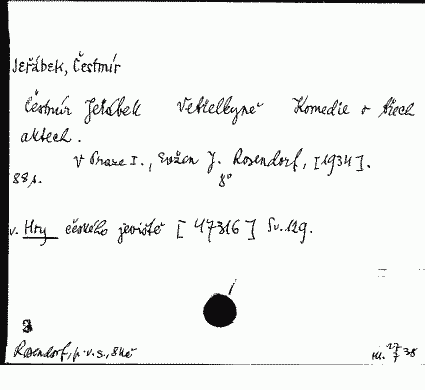 Jeřábek, Čestmír
Čestmír Jeřábek Vetřelkyně Komedie o třech
aktech.
V Praze I., Evžen J. Rosendorf, [1934].
88 s. 8°
v. Hry českého jeviště [47316] Sv. 129.
Rosendorf, p.v.s., 8 Kč